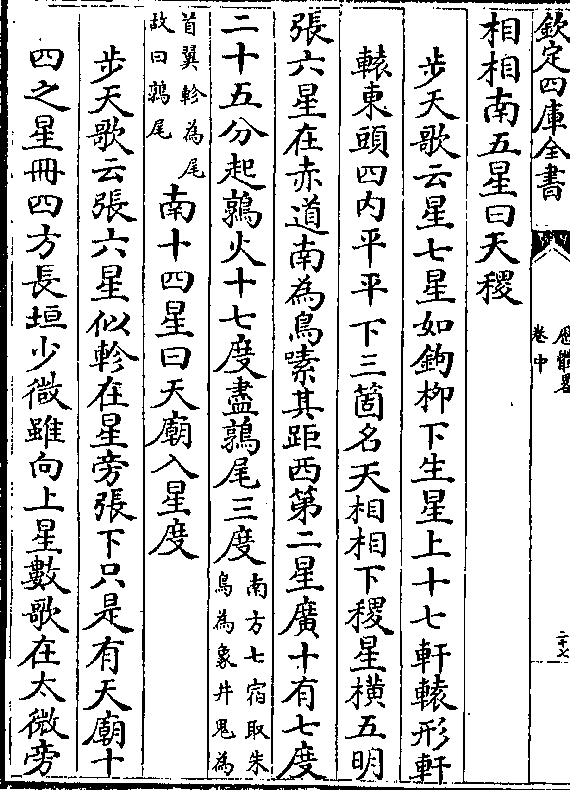 欽定四庫全書
歷體畧
卷中
二十七
相相南五星曰天稷
步天歌云星七星如鉤柳下生星上十七軒轅形軒
轅東頭四内平平下三箇名天相相下稷星橫五明
張六星在赤道南為鳥嗉其距西第二星廣十有七度
二十五分起鶉火十七度盡鶉尾三度南方七宿取朱
鳥為象井鬼為
首翼軫為尾
故曰鶉尾南十四星曰天廟入星度
步天歌云張六星似軫在星旁張下只是有天廟十
四之星冊四方長垣少微雖向上星數歌在太微旁